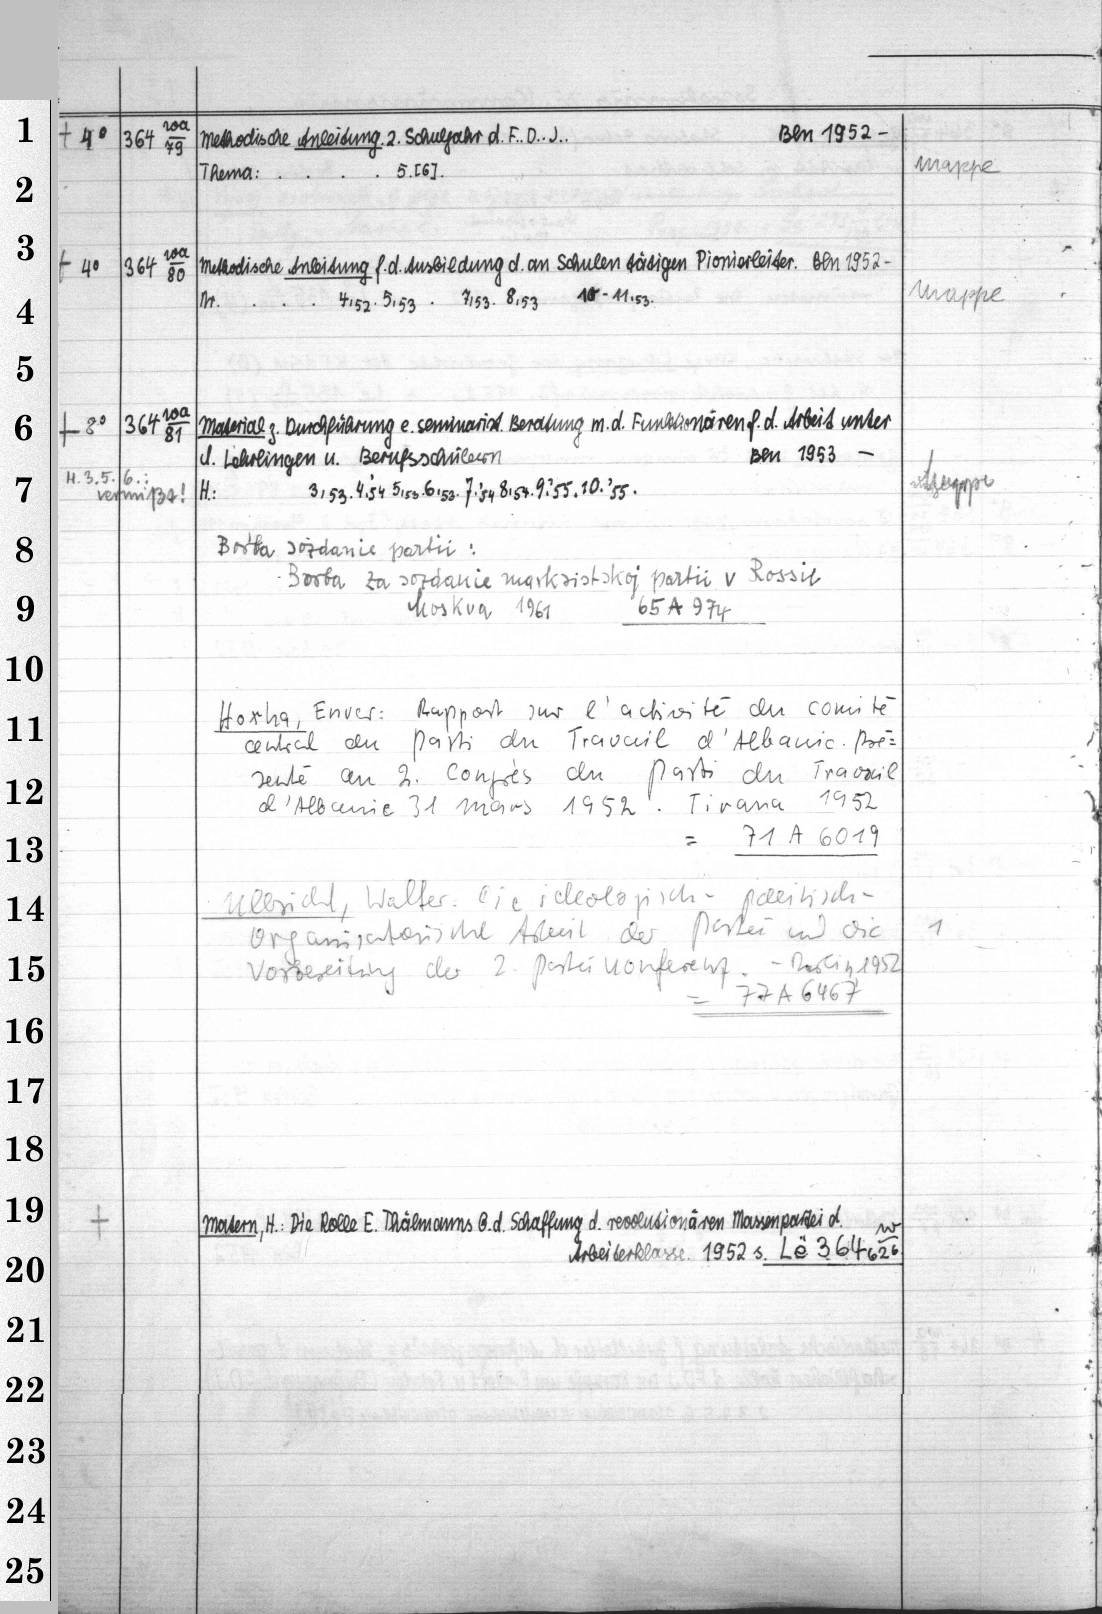 1 + 4° 364 wa/79 Methodische Anleitung. 2. Schuljahr d. F.. D.. J.. Bln 1952 –
Thema: . . . . 5.[6]. Mappe
2
3
+ 4° 364 wa/80 Methodische Anleitung f. d. Ausbildung d. an Schulen tätigen Pionierleiter. Bln 1952 –
4 Nr. . . . . 4,52. 5,53 . 7,53. 8,53 10 - 11,53. Mappe
5
6 + 8° 364 wa/81 Material z. Durchführung e. seminarist. Beratung m. d. Funktionären f. d. Arbeit unter
d. Lehrlingen u. Berufsschülern Bln 1953 –
H. 3. 5. 6. :
7 vermißt! H: 3,53. 4.'54 5,53. 6,53. 7.'54 8,54. 9.'55. 10.'55. Mappe
8 Bor'ba sozdanie partii :
Bor'ba za sozdanie marksistskoj partii v Rossii
9 Moskva 1961 65 A 974
10
Hoxha, Enver: Rapport sur l'activité du comité
11 central du Parti du Travail d'Albanie. Pré=
senté au 2. Congrès du Parti du Travail
12 d'Albanie 31 mars 1952 . Tirana 1952
13 = 71 A 6019
14 Ulbricht, Walter: Die ideologisch- politisch-
organisatorische Arbeit der Partei und die 1
15 Vorbereitung der 2. Parteikonferenz. – Berlin 1952
= 77 A 6467
16
17
18
19 + Matern, H.: Die Rolle E. Thälmanns b. d. Schaffung d. revolutionären Massenpartei d.
20 Arbeiterklasse. 1952 s. Lë 364 w/626
21
22
23
24
25